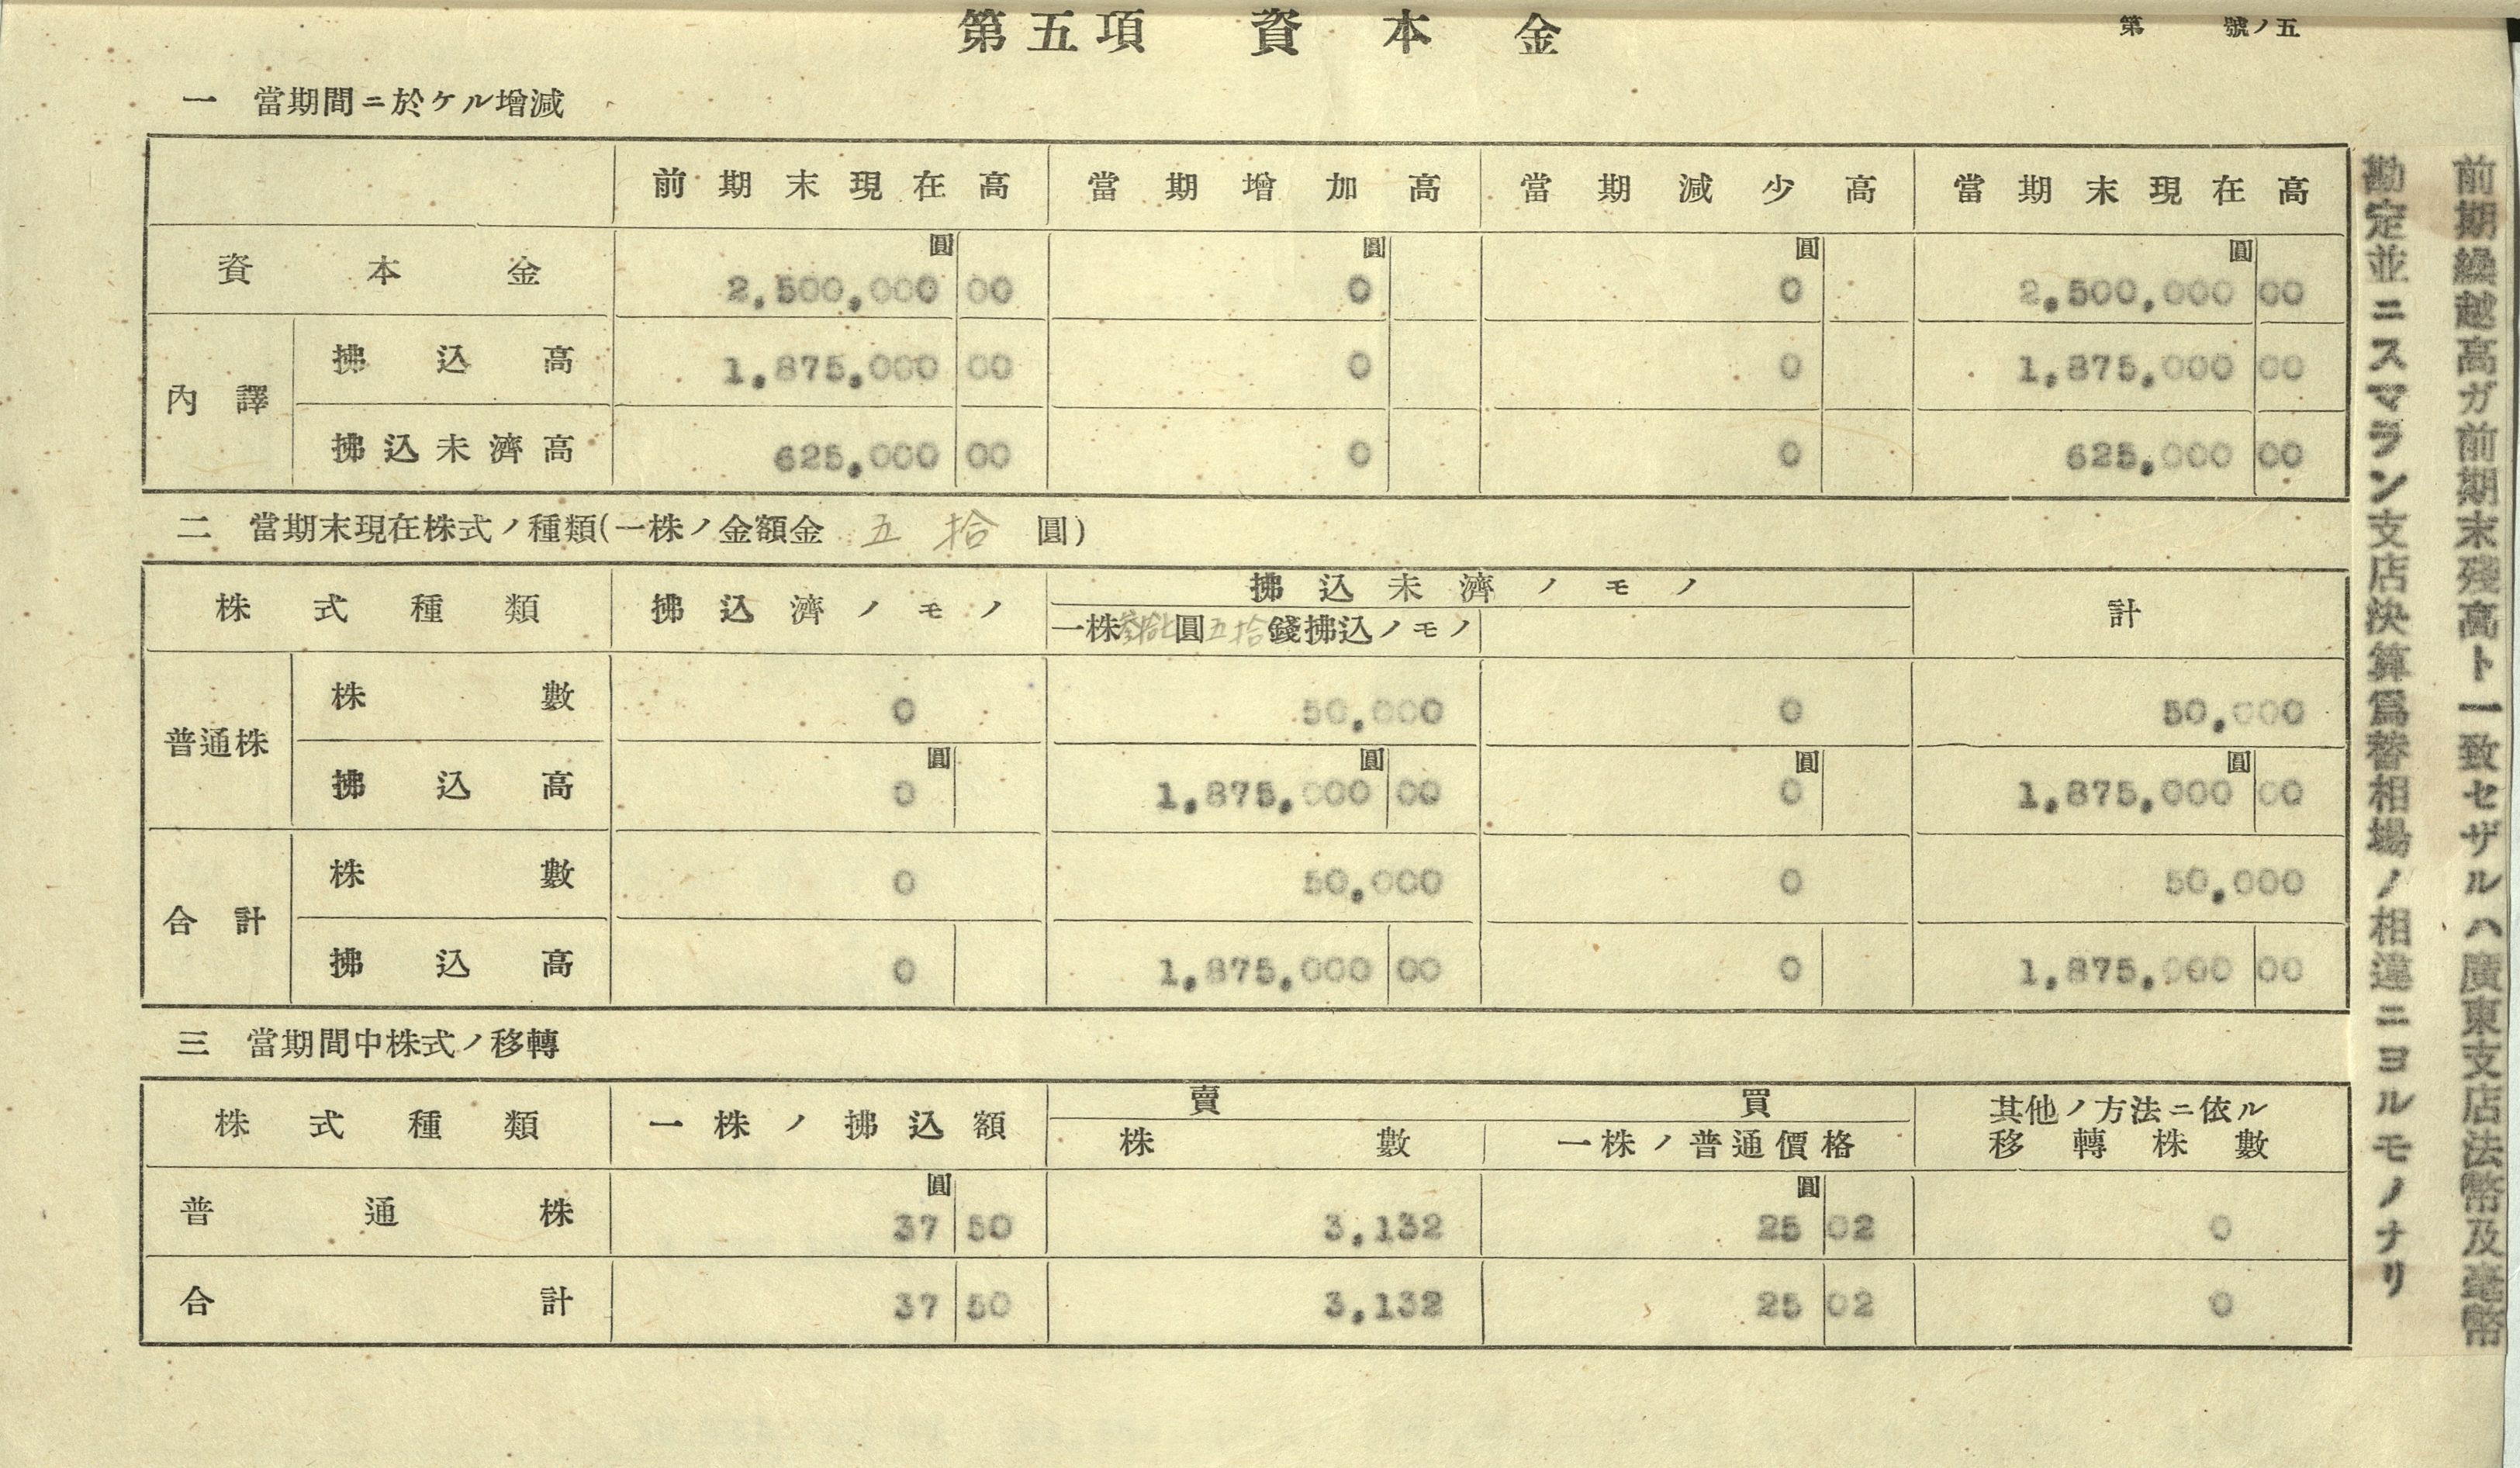 第五項 資本金
第 號ノ五
一 當期間ニ於ケル增減
前期末現在高 當期增加高 當期減少高 當期末現在高
資本金 圓 2,500,000 00 圓 0 圓 0 圓 2,500,000 00
內譯
拂込高 1,875,000 00 0 0 1,875,000 00
拂込未濟高 625,000 00 0 0 625,000 00
二 當期末現在株式ノ種類(一株ノ金額金 五拾 圓)
株式種類 拂込濟ノモノ 拂込未濟ノモノ 計
一株參拾七圓五拾錢拂込ノモノ
普通株
株數 0 50,000 0 50,000
拂込高 圓 0 圓 1,875,000 00 圓 0 圓 1,875,000 00
合計
株數 0 50,000 0 50,000
拂込高 0 1,875,000 00 0 1,875,000 00
三 當期間中株式ノ移轉
株式種類 一株ノ拂込額 賣買 其他ノ方法ニ依ル
株數 一株ノ普通價格 移轉株數
普通株 圓 37 50 3,132 圓 25 02 0
合計 37 50 3,132 25 02 0
前期繰越高ガ前期末殘高ト一致セザルハ廣東支店法幣及毫幣
勘定並ニスマラン支店決算爲替相場ノ相違ニヨルモノナリ